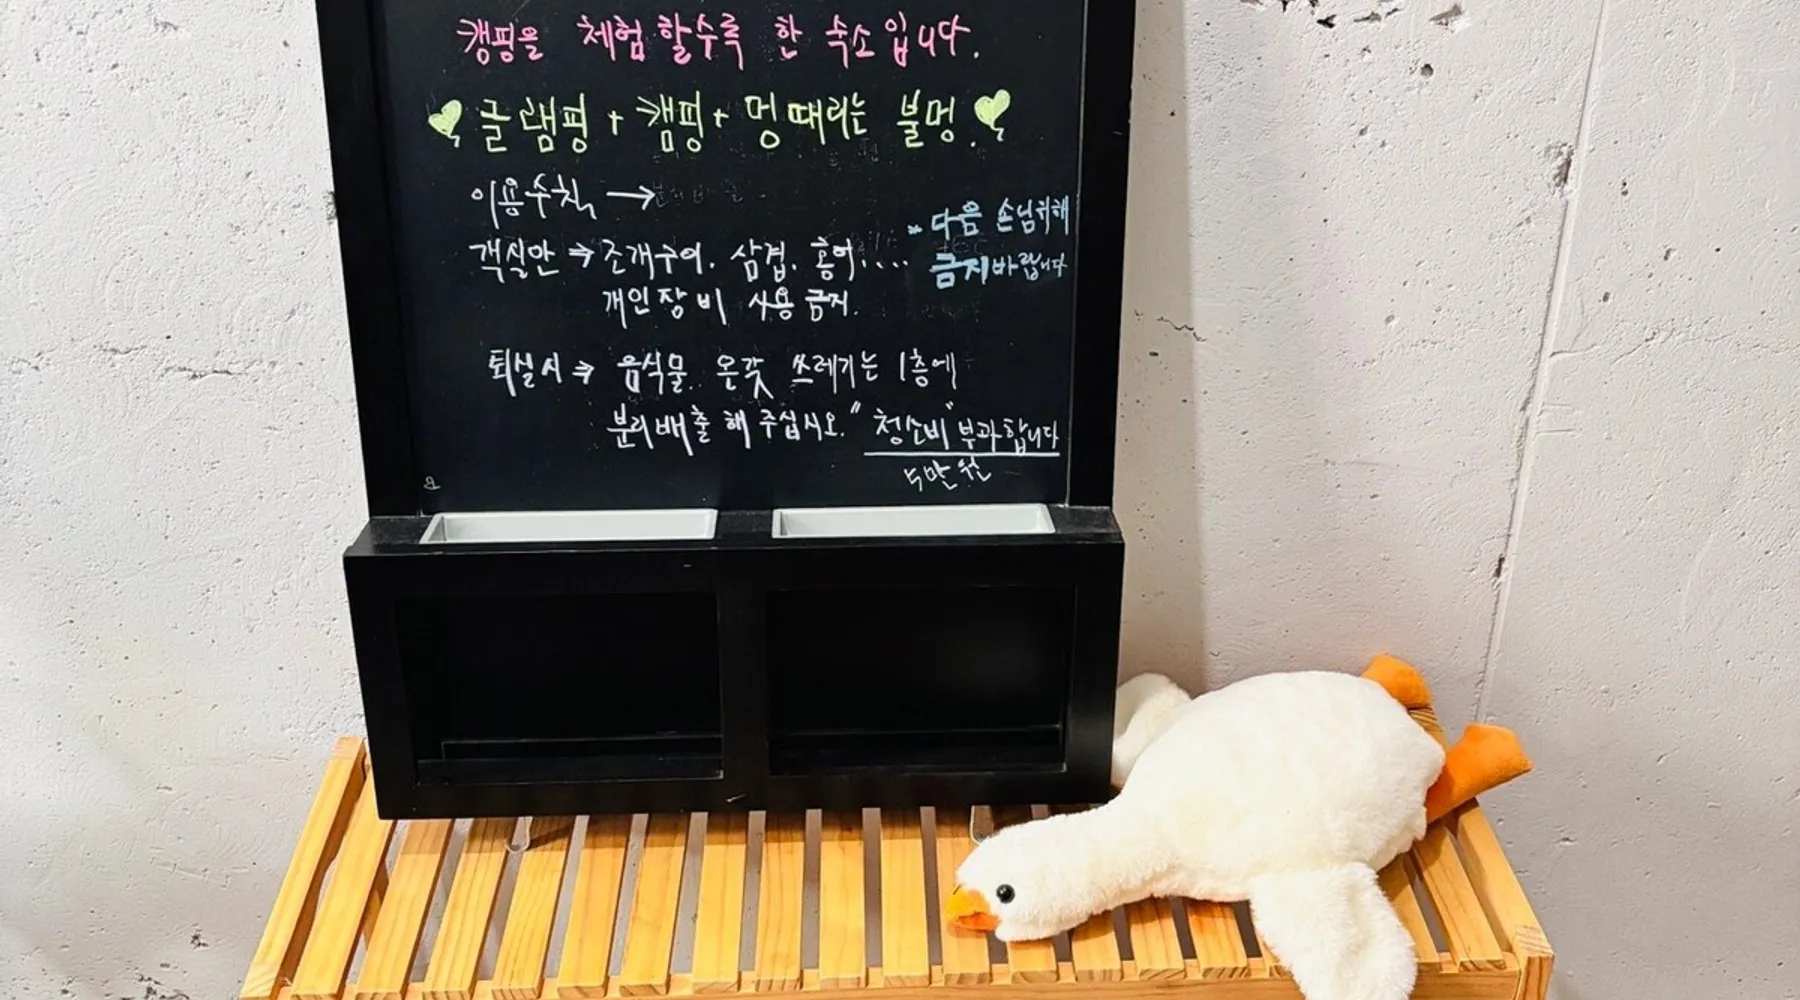 캠핑을 체험할수록 한 숙소입니다.
글램핑 + 캠핑 + 멍때리는 불멍.
이용수칙 →
객실안 ⇒ 조개구이. 삼겹. 홍어....
* 다음 손님위해
금지바랍니다
개인장비 사용금지.
퇴실시 ⇒ 음식물. 온갖 쓰레기는 1층에
분리배출 해 주십시오. "청소비" 부과합니다
5만원